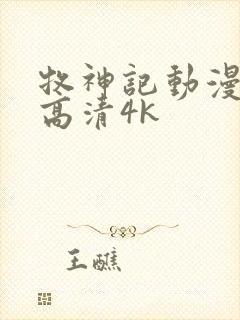 牧神記動漫
高清4K
王醮